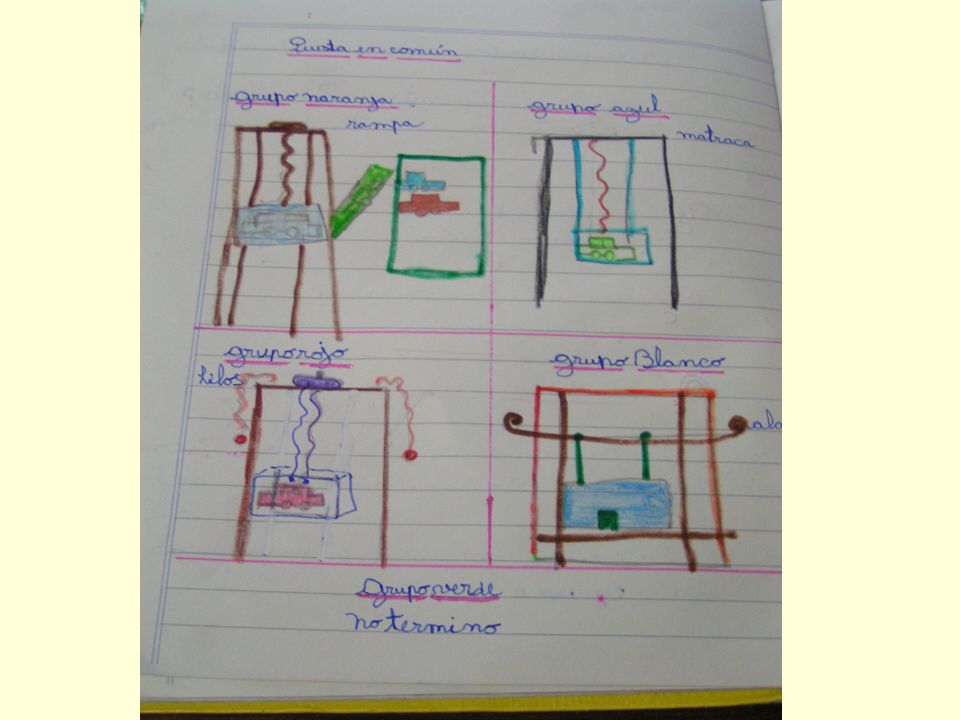 Puesta en común
grupo naranja.
rampa
grupo azul
matraca
grupo rojo
hilos
grupo Blanco
Grupo verde
No termino